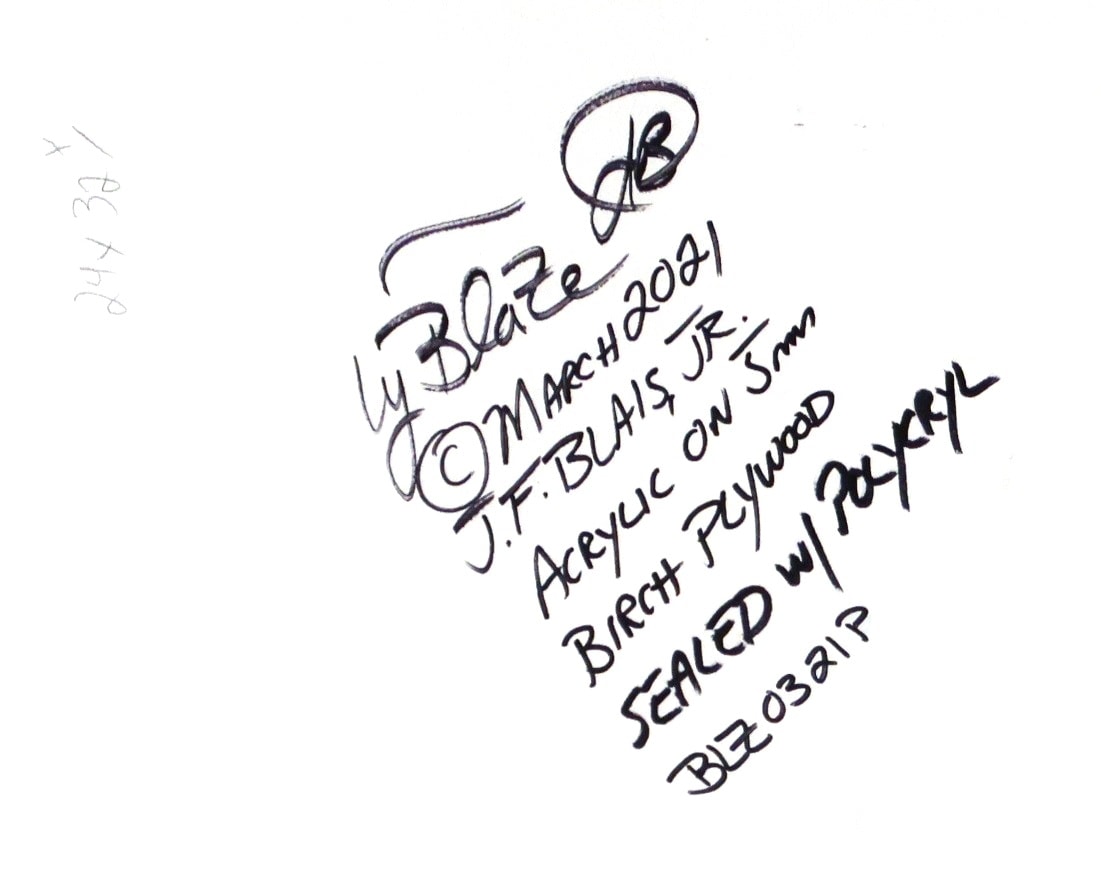 JB
by Blaze
© MARCH 2021
J.F. BLAIS, JR.
ACRYLIC ON 5mm
BIRCH PLYWOOD
SEALED W/ POLYCRYL
BLZ0321P
24 x 32